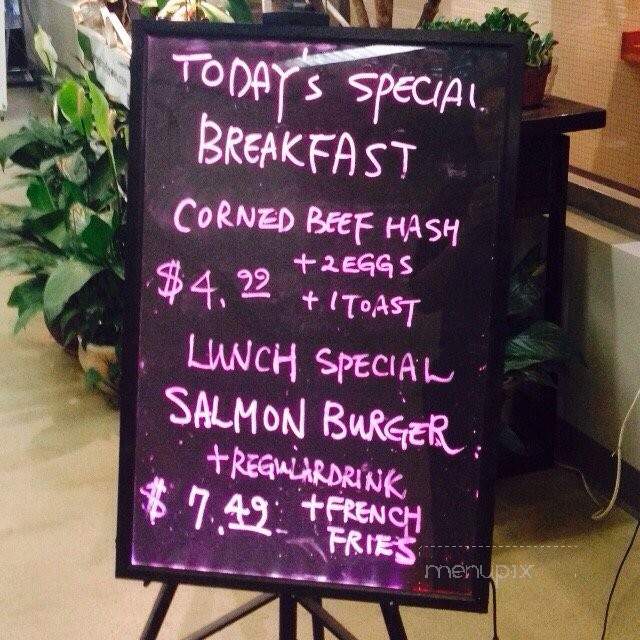 TODAY's SPECIAL
BREAKFAST
CORNED BEEF HASH
$4.99 + 2 EGGS
+ 1 TOAST
LUNCH SPECIAL
SALMON BURGER
+ REGULAR DRINK
$7.49 + FRENCH
FRIES
menupix